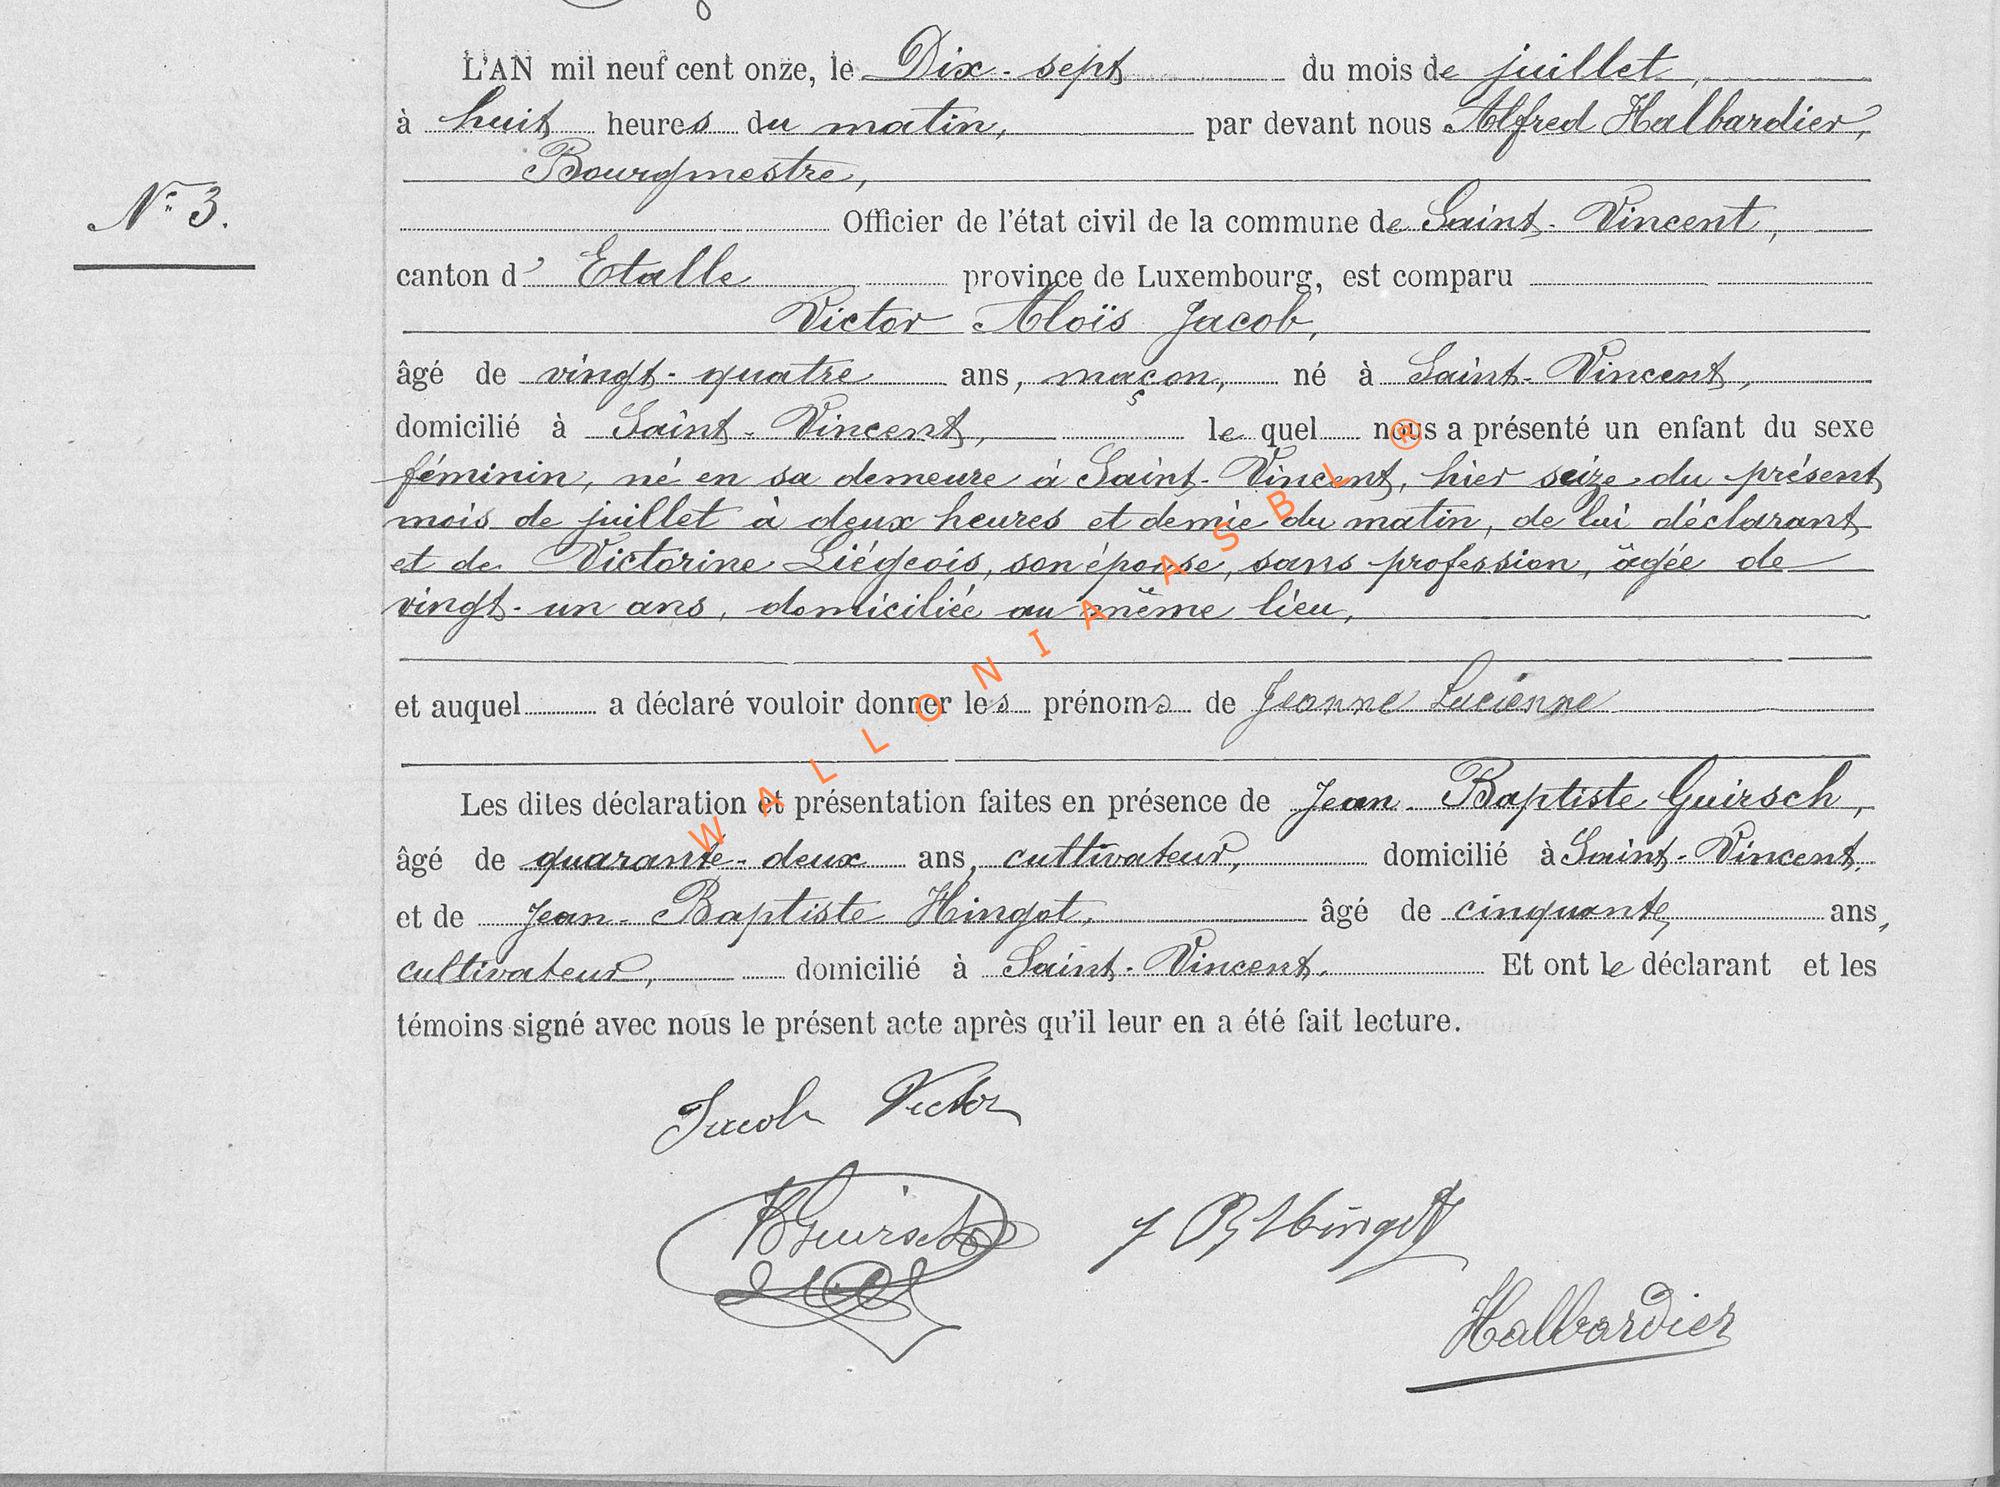 L'AN mil neuf cent onze, le Dix-sept du mois de juillet,
à huit heures du matin, par devant nous Alfred Halbardier,
Bourgmestre,
N° 3.
Officier de l'état civil de la commune de Saint-Vincent,
canton d' Etalle province de Luxembourg, est comparu
Victor Aloïs Jacob,
âgé de vingt-quatre ans, maçon, né à Saint-Vincent,
domicilié à Saint-Vincent, le quel nous a présenté un enfant du sexe
féminin, né en sa demeure à Saint-Vincent, hier seize du présent
mois de juillet à deux heures et demie du matin, de lui déclarant
et de Victorine Liégeois, son épouse, sans profession, âgée de
vingt-un ans, domiciliée au même lieu,
et auquel a déclaré vouloir donner les prénoms de Jeanne Lucienne
Les dites déclaration et présentation faites en présence de Jean-Baptiste Guirsch,
âgé de quarante-deux ans, cultivateur, domicilié à Saint-Vincent,
et de Jean-Baptiste Hingot, âgé de cinquante ans,
cultivateur, domicilié à Saint-Vincent. Et ont le déclarant et les
témoins signé avec nous le présent acte après qu'il leur en a été fait lecture.
Jacob Victor
JBGuirsch
J B Hingot
Halbardier
WALLONIA ASBL ®